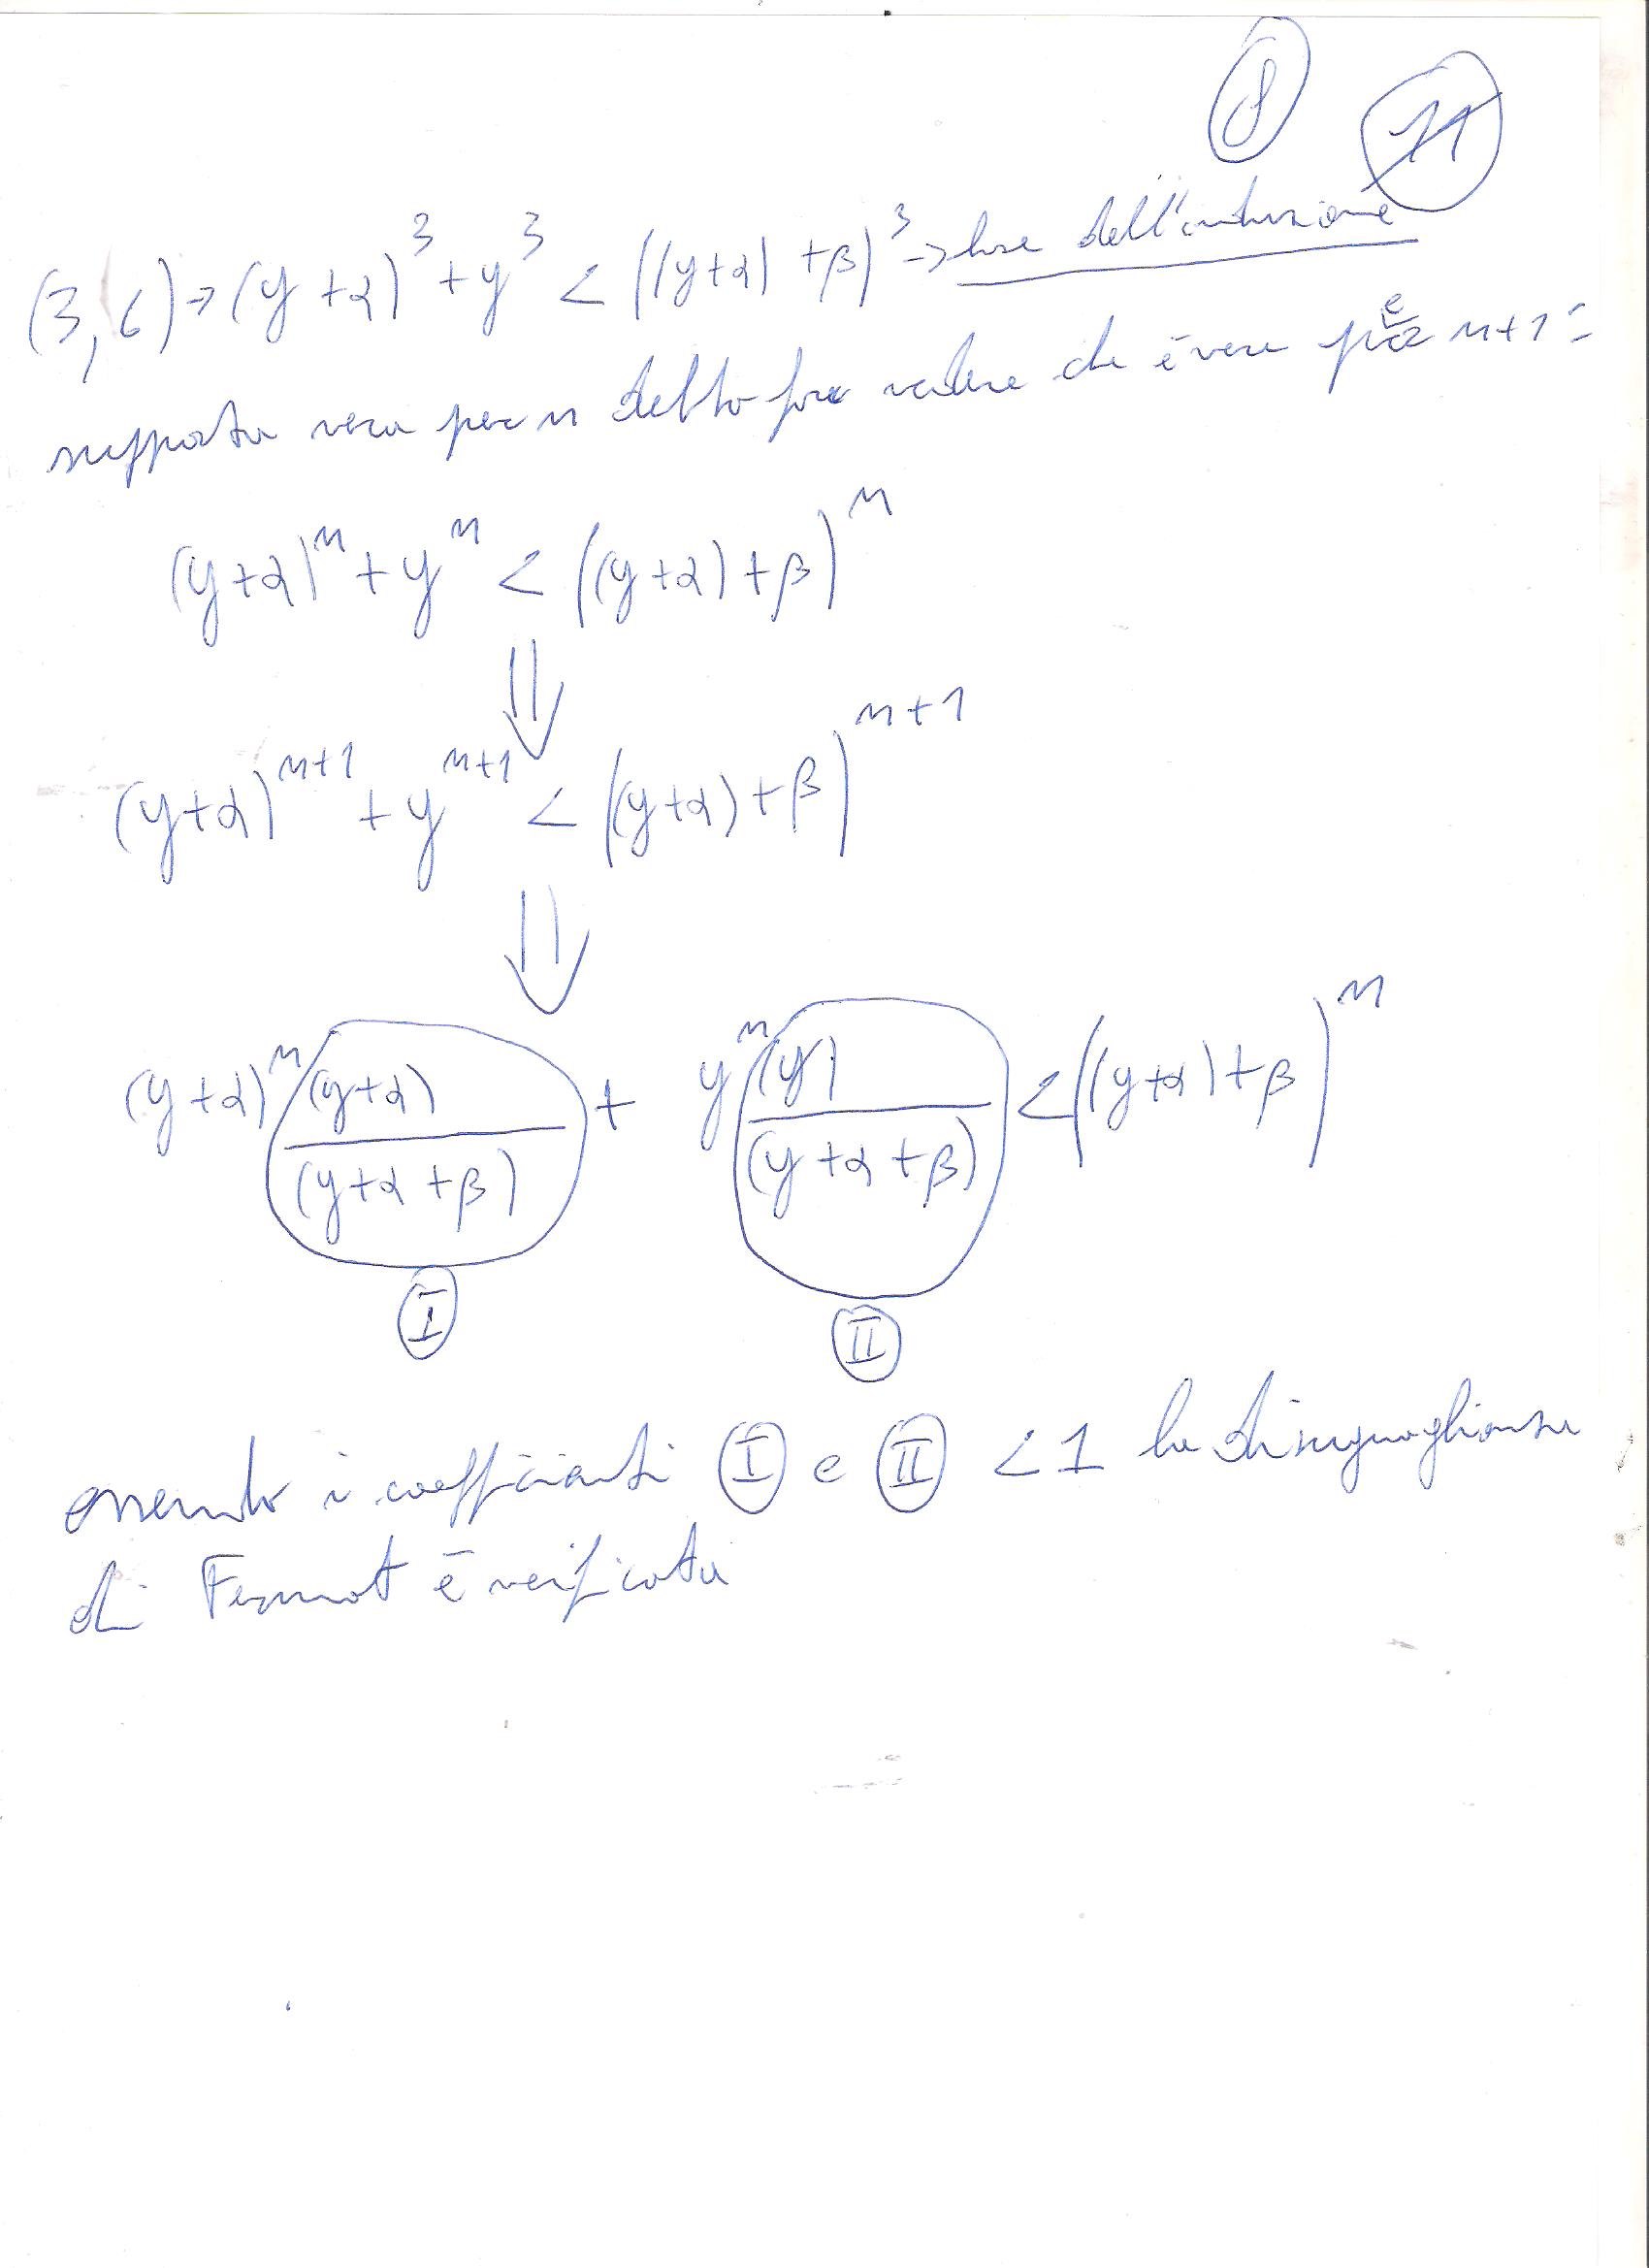 8 11
(3,6)→(y+α)³+y³ < ((y+α)+β)³→base dell'induzione
supposta vera per n debbo far vedere che è vera per n+1:
(y+α)ⁿ+yⁿ < ((y+α)+β)ⁿ
⇓
(y+α)ⁿ⁺¹+yⁿ⁺¹ < ((y+α)+β)ⁿ⁺¹
⇓
(y+α)ⁿ (y+α)/(y+α+β) + yⁿ (y)/(y+α+β) < ((y+α)+β)ⁿ
I II
essendo i coefficienti I e II < 1 la disuguaglianza
di Fermat è verificata